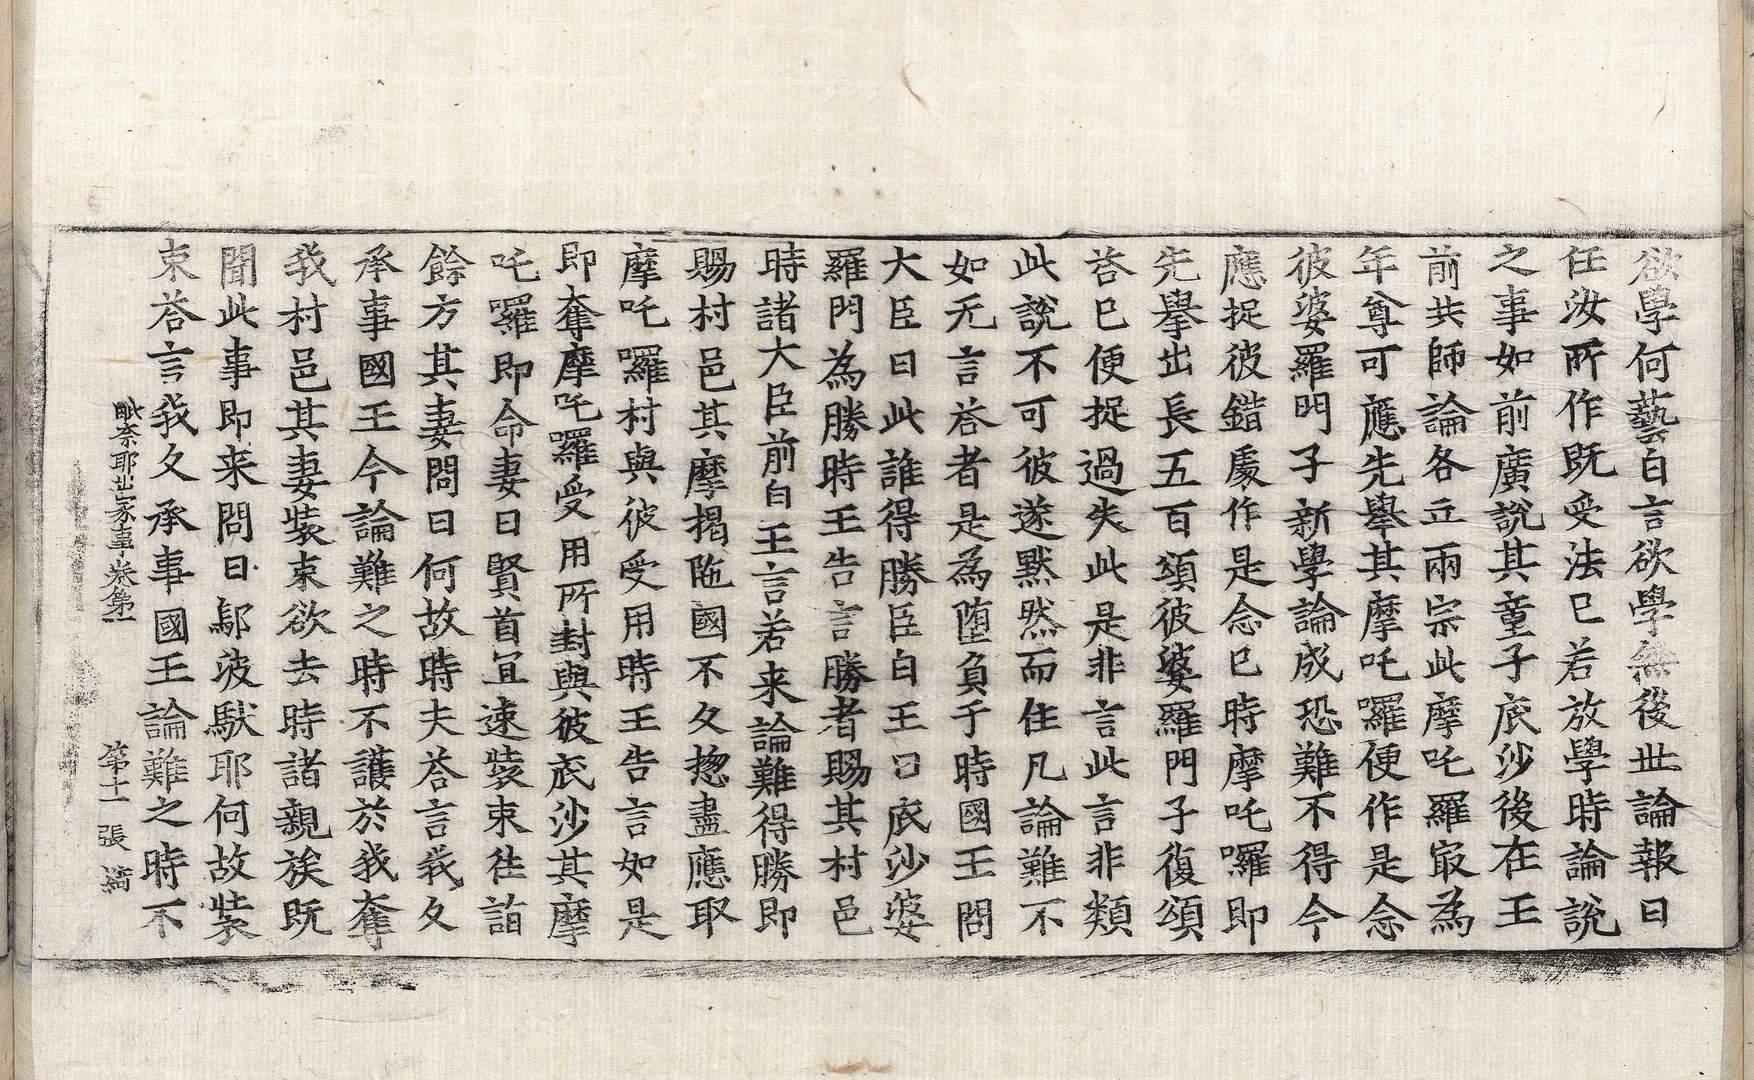 欲學何藝白言欲學無後世論報曰
任汝所作既受法已若放學時論說
之事如前廣說其童子底沙後在王
前共師論各立兩宗此摩吒羅冣為
年尊可應先舉其摩吒囉便作是念
彼婆羅門子新學論成恐難不得今
應捉彼錯處作是念已時摩吒囉即
先舉出長五百頌彼婆羅門子復頌
荅已便捉過失此是非言此言非類
此說不可彼遂默然而住凡論難不
如无言荅者是為墮負于時國王問
大臣曰此誰得勝臣白王曰底沙婆
羅門為勝時王告言勝者賜其村邑
時諸大臣前白王言若来論難得勝即
賜村邑其摩揭陁國不久揔盡應取
摩吒囉村與彼受用時王告言如是
即奪摩吒囉受用所封與彼底沙其摩
吒囉即命妻曰賢首冝速裝束往詣
餘方其妻問曰何故時夫荅言我久
承事國王今論難之時不護於我奪
我村邑其妻裝束欲去時諸親族既
聞此事即来問曰鄔波馱耶何故裝
束荅言我久承事國王論難之時不
毗奈耶出家事卷第一 第十一張 綺